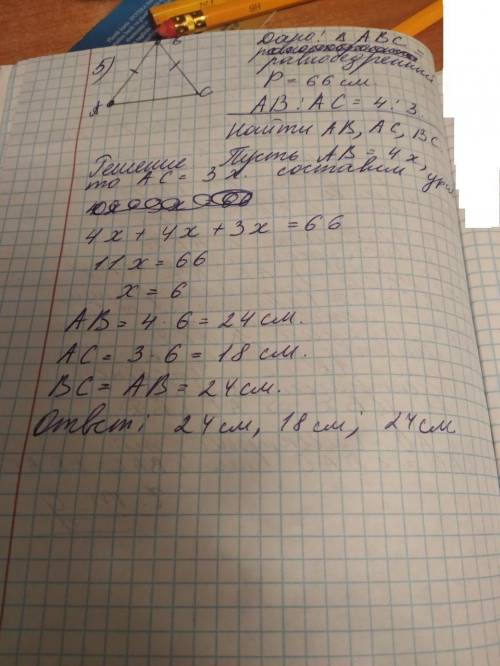 5)
B
A
C
Дано: △ ABC –
равнобедренный
P = 66 см
AB : AC = 4 : 3
Найти AB, AC, BC
Решение Пусть AB = 4x,
то AC = 3x составим
4x + 4x + 3x = 66
11x = 66
x = 6
AB = 4 · 6 = 24 см.
AC = 3 · 6 = 18 см.
BC = AB = 24 см.
Ответ: 24 см, 18 см; 24 см